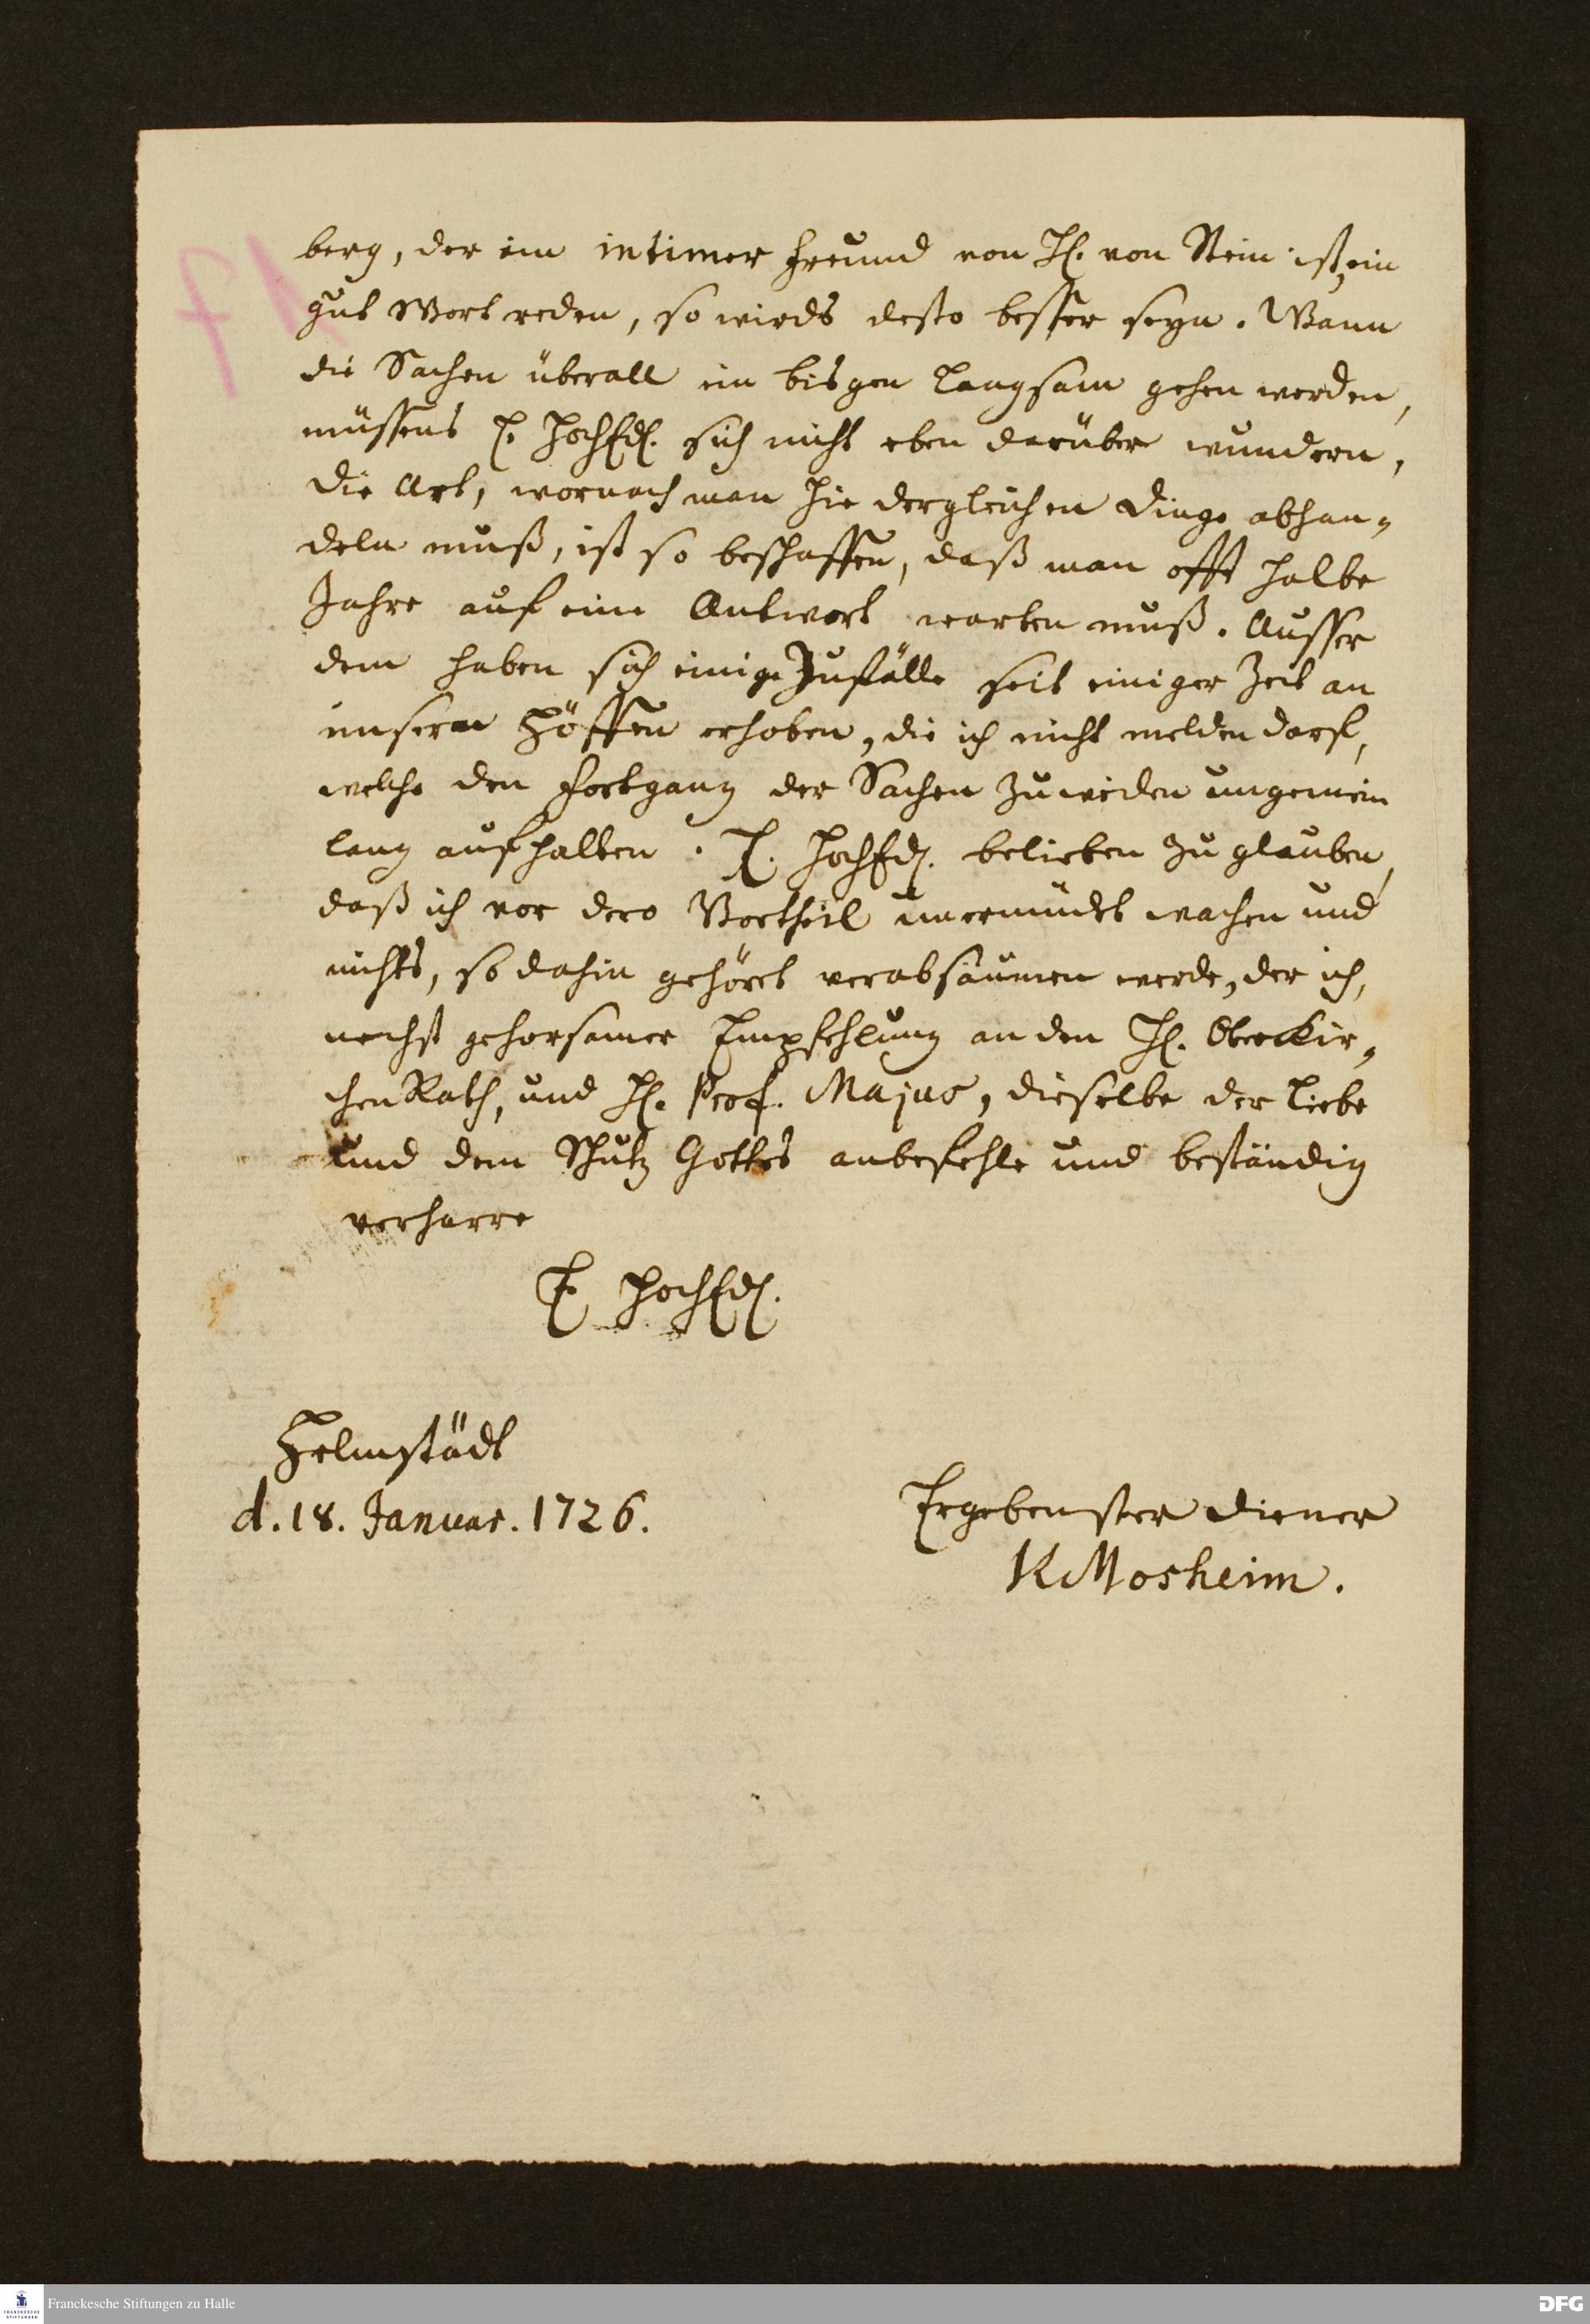 berg, der ein intimer Freund von H. von Stein ist, ein
gut Wort reden, so wirds desto besser seyn. Wann
die Sachen überall ein bisgen langsam gehen werden,
müssens E. HochEd. sich nicht eben darüber wundern,
die Art, wornach man hie dergleichen Dinge abhan-
deln muß, ist so beschaffen, daß man offt halbe
Jahre auf eine Antwort warten muß. Ausser
dem haben sich einige Zufälle seit einiger Zeit an
unsern Höffen erhoben, die ich nicht melden darf,
welche den Fortgang der Sachen zuweilen ungemein
lang aufhalten. E. HochEd. belieben zu glauben,
daß ich vor dero Vortheil unermüdet wachen und
nichts, so dahin gehöret verabsäumen werde, der ich,
nechst gehorsamer Empfehlung an den H. OberKir-
chenRath, und H. Prof. Majus, dieselbe der Liebe
und dem Schutz Gottes anbefehle und beständig
verharre
E HochEd.
Helmstädt
d. 18. Januar. 1726.
Ergebenster Diener
Mosheim.
Franckesche Stiftungen zu Halle
DFG